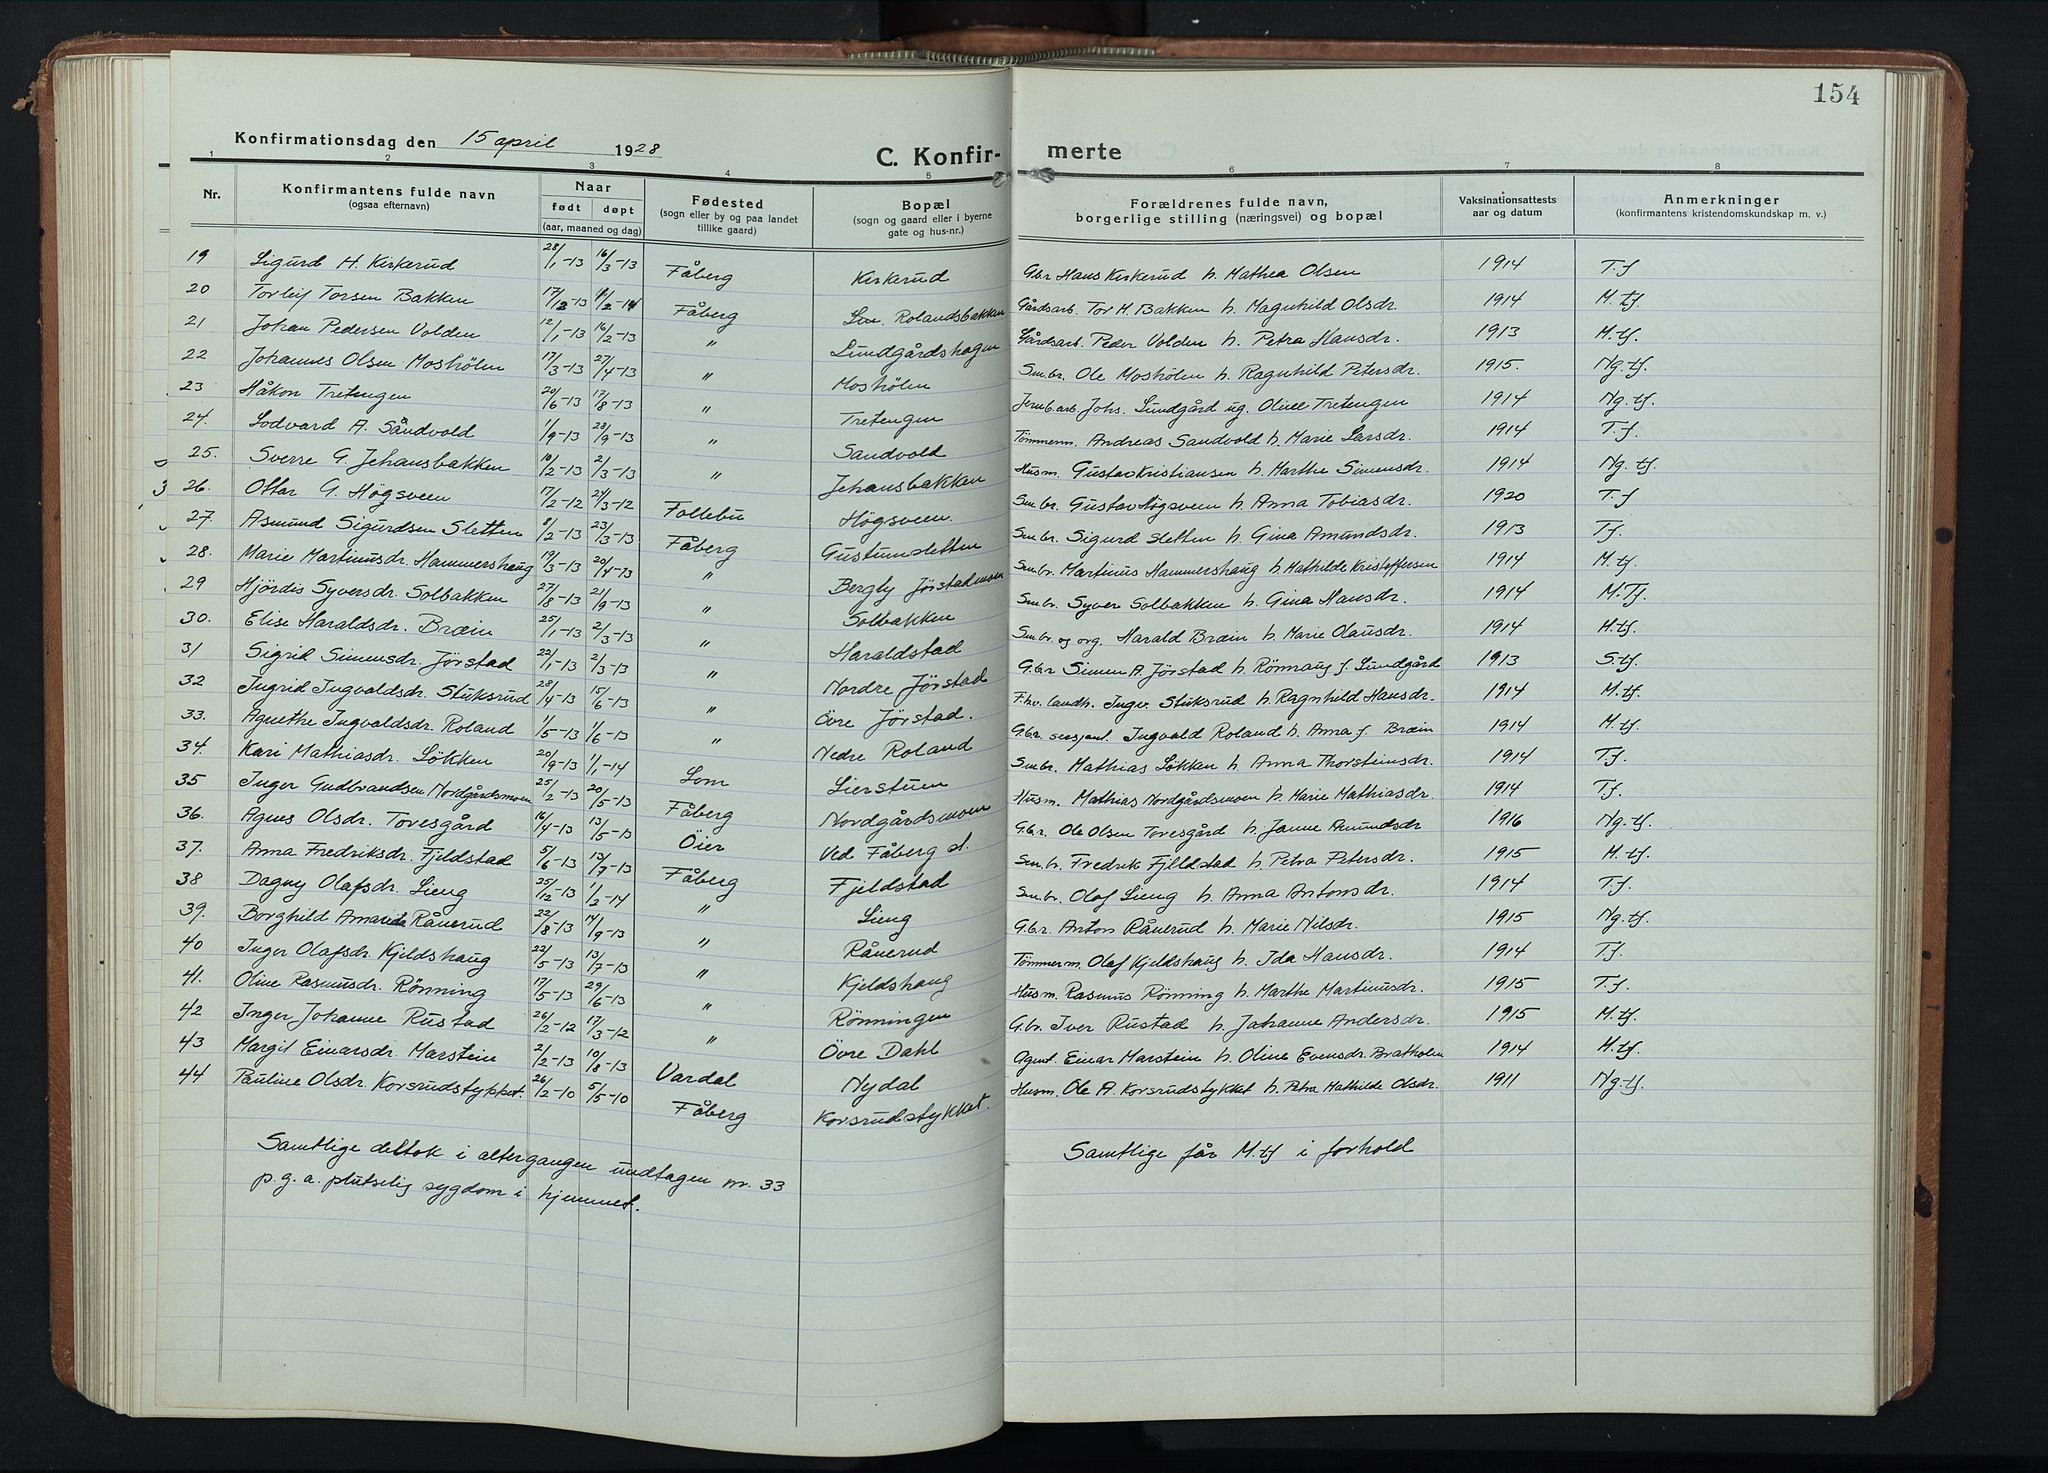 154
Konfirmationsdag den 15 april 1928
C. Konfir- merte
1 2 3 4 5 6 7 8
Nr. Konfirmantens fulde navn (ogsaa efternavn) Naar født døpt (aar, maaned og dag) Fødested (sogn eller by og paa landet tillike gaard) Bopæl (sogn og gaard eller i byerne gate og hus-nr.) Forældrenes fulde navn, borgerlige stilling (næringsvei) og bopæl Vaksinationsattests aar og datum Anmerkninger (konfirmantens kristendomskundskap m. v.)
19 Sigurd H. Kirkerud 28/1-13 16/3-13 Fåberg Kirkerud Gbr Hans Kirkerud h. Mathea Olsen 1914 T.f
20 Torleif Torsen Bakken 17/12-13 9/2-14 Fåberg Rolandsbakken Gårdsarb. Tor M. Bakken h. Magnhild Olsdr. 1914 M.tf
21 Johan Pedersen Volden 12/1-13 16/2-13 " Lundgårdshagen Gårdsarb. Peder Volden h. Petra Hansdr. 1913 M.tf.
22 Johannes Olsen Moshölen 17/3-13 27/4-13 " Moshölen Smbr. Ole Moshölen h. Ragnhild Petersdr. 1915. Ng.tf.
23 Håkon Tretengen 20/6-13 17/8-13 " Tretengen Jernb.arb. Johs. Lundgård ug. Oline Tretengen 1914 Ng.tf.
24. Lodvard A. Sandvold 1/9-13 28/9-13 " Sandvold Tömmerm. Andreas Sandvold h. Marie Larsdr. 1914 T.f.
25. Sverre G. Jehansbakken 10/2-13 2/3-13 " Jehansbakken Husm. Gustav Kristiansen h. Marthe Simensdr. 1914 Ng.tf
26. Ottar G. Högsveen 17/2-12 24/3-12 Follebu Högsveen. Smbr. Gustav Högsveen h. Anna Tobiasdr. 1920 T.f
27. Asmund Sigurdsen Sletten 8/2-13 23/3-13 Fåberg Gustumsletten Smbr. Sigurd Sletten h. Gina Amundsdr. 1913 Tf.
28. Marie Martinusdr. Hammershaug 19/3-13 20/4-13 " Bergly Jörstadmoen Smbr. Martinus Hammershaug h. Mathilde Kristoffersen 1914 M.tf.
29 Hjördis Syversdr. Solbakken 27/8-13 21/9-13 " Solbakken Smbr. Syver Solbakken h. Gina Hansdr. 1914 M.Tf.
30. Elise Haraldsdr. Bræin 25/1-13 2/3-13 " Haraldstad Smbr. og org. Harald Bræin h. Marie Olausdr. 1914 M.tf.
31 Sigrid Simensdr. Jörstad 22/1-13 2/3-13 " Nordre Jörstad G.br Simen A. Jörstad h. Rönnaug f. Lundgård 1913 S.tf.
32 Ingrid Ingvaldsdr. Stuksrud 28/4-13 15/6-13 " Övre Jörstad. F.hv. landh. Ingv. Stuksrud h. Ragnhild Hansdr. 1914 M.tf.
33. Agnethe Ingvaldsdr. Roland 1/5-13 1/6-13 " Nedre Roland G.br sersjant. Ingvald Roland h. Anna f. Bræin 1914 M.tf.
34. Kari Mathiasdr. Lökken 20/9-13 1/1-14 Lom Lierstuen Smbr. Mathias Lökken h. Anna Thorsteinsdr. 1914 T.f.
35 Inger Gudbrandsen Nordgårdsmoen 25/2-13 20/5-13 Fåberg Nordgårdsmoen Husm. Mathias Nordgårdsmoen h. Marie Mathiasdr. 1914 T.f.
36. Agnes Olsdr. Toresgård 16/4-13 13/5-13 Öier Ved Fåberg st. G.br. Ole Olsen Toresgård h. Janne Amundsdr 1916 Ng.tf.
37. Anna Fredriksdr. Fjeldstad 5/6-13 13/7-13 Fåberg Fjeldstad Sm.br. Fredrik Fjeldstad h. Petra Petersdr. 1915 M.tf.
38 Dagny Olafsdr. Lieng 25/12-13 1/2-14 " Lieng Sm.br. Olaf Lieng h. Anna Antonsdr. 1914 T.f.
39. Borghild Amanda Rånerud 22/8-13 14/9-13 " Rånerud G.br. Anton Rånerud h. Marie Nilsdr. 1915 Ng.tf.
40 Inger Olafsdr. Kjeldshaug 22/5-13 13/7-13 " Kjeldshaug Tömmerm. Olaf Kjeldshaug h. Ida Hansdr. 1914 T.f.
41. Oline Rasmusdr. Rönning 17/5-13 29/6-13 " Rönningen Husm. Rasmus Rönning h. Marthe Martinusdr. 1915 T.f.
42 Inger Johanne Rustad 26/2-12 17/3-12 " Övre Dahl G.br. Iver Rustad h. Johanne Andersdr. 1915 M.tf.
43 Margit Einarsdr. Marstein 2/2-13 10/8-13 Vardal Nydal Agent. Einar Marstein h. Oline Evensdr. Bratholm 1914 M.tf.
44 Pauline Olsdr. Korsrudstykket. 26/2-10 5/5-10 Fåberg Korsrudstykket. Husm. Ole A. Korsrudstykket h. Petra Mathilde Olsdr. 1911 Ng.tf.
Samtlige deltok i altergangen undtagen nr. 33
p.g.a. plutselig sygdom i hjemmet.
Samtlige får M.tf i forhold